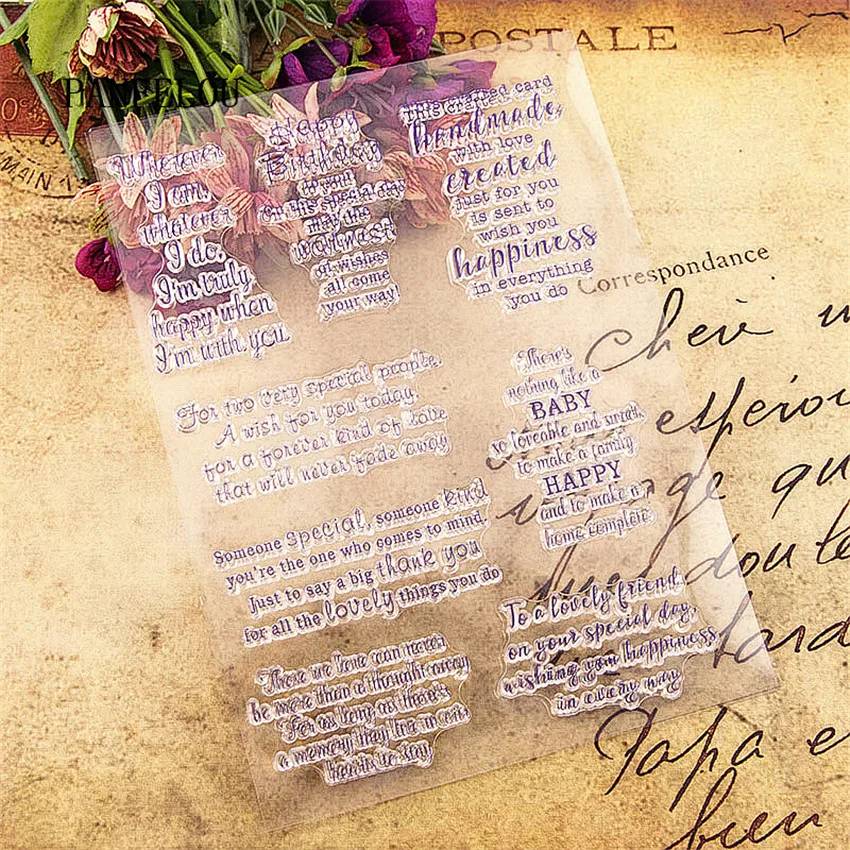 POSTALE
PANFELOU
MAIN 13
Wherever
I am,
whatever
I do,
I'm truly
happy when
I'm with you
Happy
Birthday
to you!
On this special day
may the
warmest
of wishes
all come
your way!
This crafted card
handmade,
with love
created
just for you
is sent to
wish you
happiness
in everything
you do
Correspondance
For two very special people,
A wish for you today,
for a forever kind of love
that will never fade away
There's
nothing like a
BABY
so loveable and small,
to make a family
HAPPY
and to make a
home complete.
Someone special, someone kind
you're the one who comes to mind.
Just to say a big thank you
for all the lovely things you do
Those we love can never
be more than a thought away
For as long as there's
a memory they live in our
hearts to stay
To a lovely friend,
on your special day,
wishing you happiness
in every way
Papa